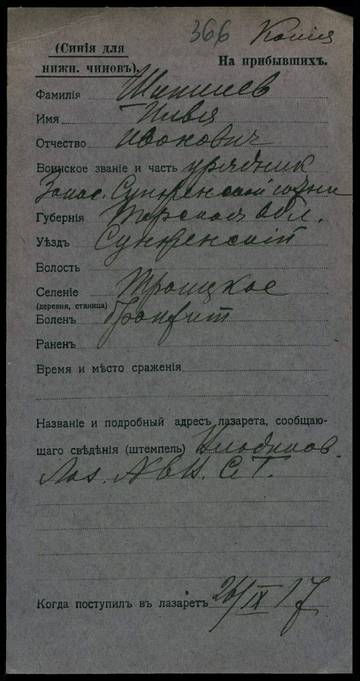 366 Копия
(Синія для
нижн. чиновъ).
На прибывшихъ.
Фамилія
Имя Илья
Отчество Иванович
Воинское званіе и часть урядник
Запас. Сунженской сотни
Губернія Терская обл.
Уѣздъ Сунженскій
Волость
Селеніе Троицкое
(деревня, станица)
Боленъ Бронхит
Раненъ
Время и мѣсто сраженія
Названіе и подробный адресъ лазарета, сообщаю-
щаго свѣдѣнія (штемпель)
Лаз.
Когда поступилъ въ лазаретъ 26/IX 17